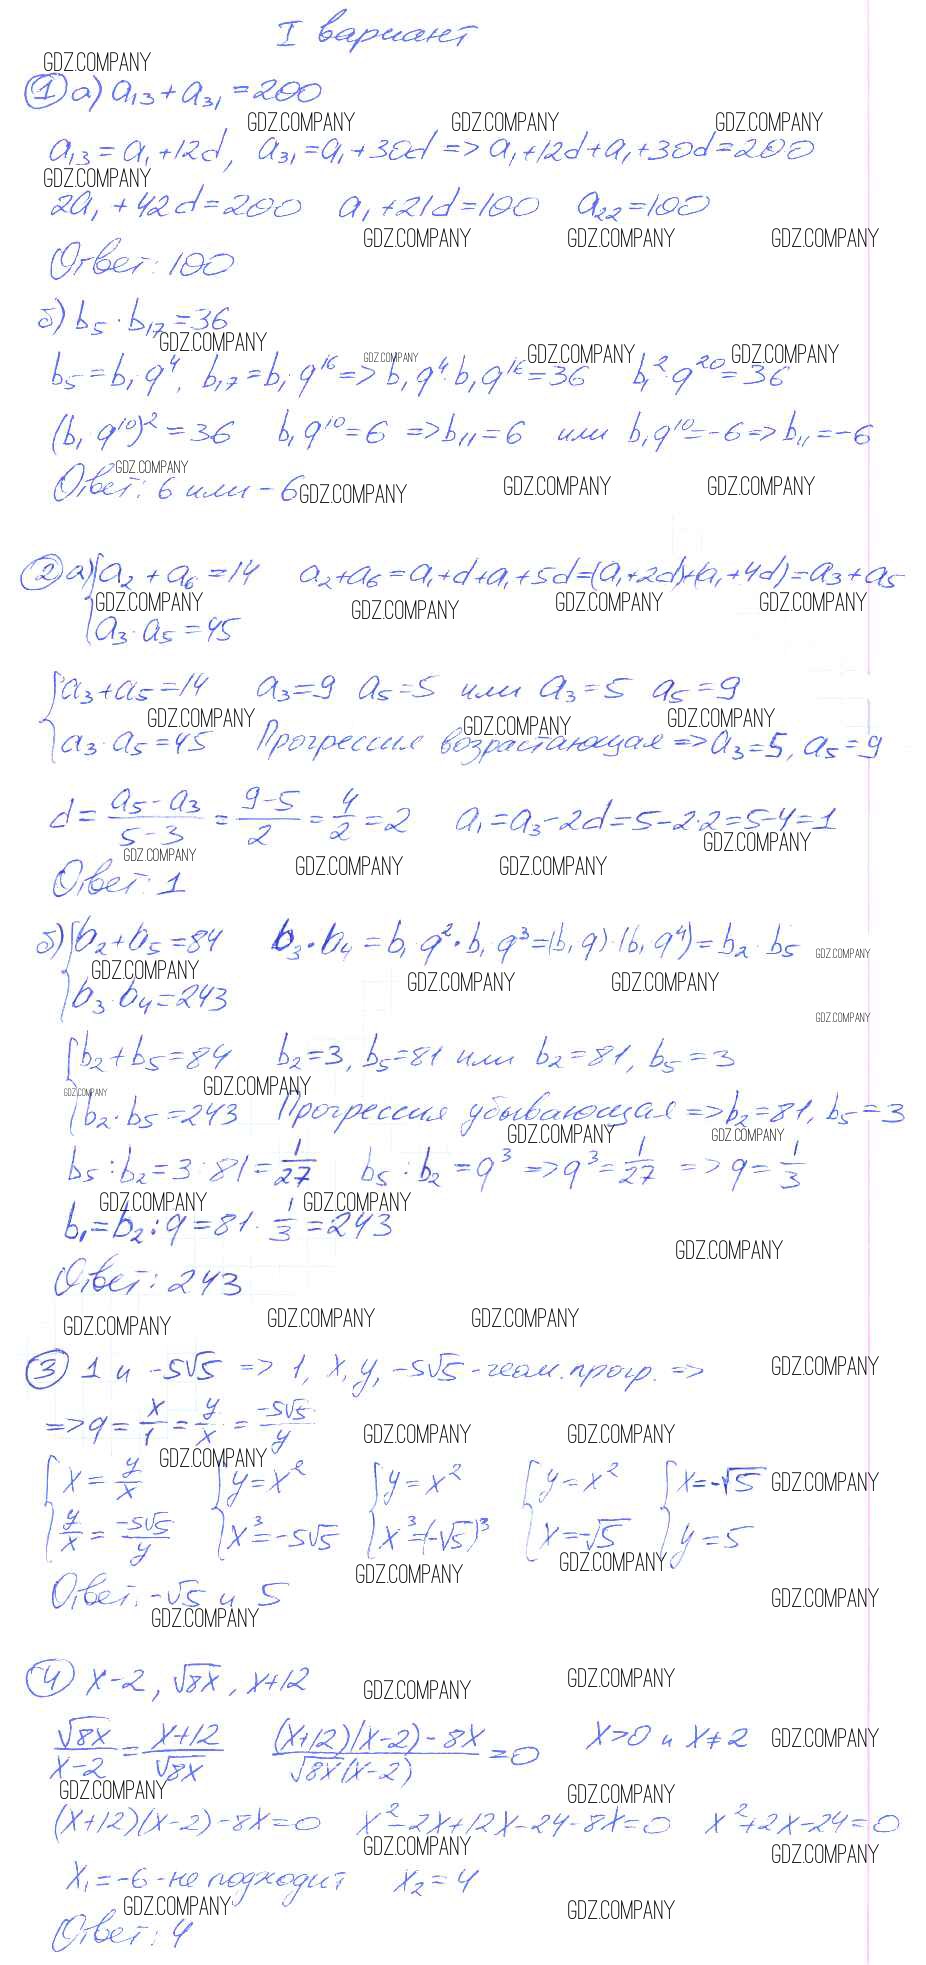 I вариант
GDZ.COMPANY
① а) a₁₃ + a₃₁ = 200
GDZ.COMPANY GDZ.COMPANY GDZ.COMPANY
a₁₃ = a₁ + 12d, a₃₁ = a₁ + 30d => a₁ + 12d + a₁ + 30d = 200
GDZ.COMPANY
2a₁ + 42d = 200 a₁ + 21d = 100 a₂₂ = 100
GDZ.COMPANY GDZ.COMPANY GDZ.COMPANY
Ответ: 100
б) b₅ · b₁₇ = 36
GDZ.COMPANY GDZ.COMPANY GDZ.COMPANY GDZ.COMPANY
b₅ = b₁q⁴, b₁₇ = b₁q¹⁶ => b₁q⁴ · b₁q¹⁶ = 36 b₁² · q²⁰ = 36
(b₁q¹⁰)² = 36 b₁q¹⁰ = 6 => b₁₁ = 6 или b₁q¹⁰ = -6 => b₁₁ = -6
GDZ.COMPANY
Ответ: 6 или -6
GDZ.COMPANY GDZ.COMPANY GDZ.COMPANY
② а) { a₂ + a₆ = 14 a₂ + a₆ = a₁ + d + a₁ + 5d = (a₁ + 2d) + (a₁ + 4d) = a₃ + a₅
GDZ.COMPANY GDZ.COMPANY GDZ.COMPANY GDZ.COMPANY
a₃ · a₅ = 45
{ a₃ + a₅ = 14 a₃ = 9 a₅ = 5 или a₃ = 5 a₅ = 9
GDZ.COMPANY GDZ.COMPANY GDZ.COMPANY
a₃ · a₅ = 45 Прогрессия возрастающая => a₃ = 5, a₅ = 9
d = (a₅ - a₃)/(5 - 3) = (9 - 5)/2 = 4/2 = 2 a₁ = a₃ - 2d = 5 - 2·2 = 5 - 4 = 1
GDZ.COMPANY GDZ.COMPANY GDZ.COMPANY GDZ.COMPANY
Ответ: 1
б) { b₂ + b₅ = 84 b₃ · b₄ = b₁q² · b₁q³ = (b₁q) · (b₁q⁴) = b₂ · b₅
GDZ.COMPANY GDZ.COMPANY GDZ.COMPANY GDZ.COMPANY
b₃ · b₄ = 243
GDZ.COMPANY
{ b₂ + b₅ = 84 b₂ = 3, b₅ = 81 или b₂ = 81, b₅ = 3
GDZ.COMPANY GDZ.COMPANY
b₂ · b₅ = 243 Прогрессия убывающая => b₂ = 81, b₅ = 3
GDZ.COMPANY GDZ.COMPANY
b₅ : b₂ = 3 : 81 = 1/27 b₅ : b₂ = q³ => q³ = 1/27 => q = 1/3
GDZ.COMPANY GDZ.COMPANY
b₁ = b₂ : q = 81 · 1/3 = 243
GDZ.COMPANY
Ответ: 243
GDZ.COMPANY GDZ.COMPANY GDZ.COMPANY
③ 1 и -5√5 => 1, x, y, -5√5 - геом. прогр. =>
GDZ.COMPANY
=> q = x/1 = y/x = -5√5/y
GDZ.COMPANY GDZ.COMPANY
GDZ.COMPANY
{ x = y/x { y = x² { y = x² { y = x² { x = -√5
GDZ.COMPANY
y/x = -5√5/y x³ = -5√5 x³ = (-√5)³ x = -√5 y = 5
GDZ.COMPANY GDZ.COMPANY
Ответ: -√5 и 5
GDZ.COMPANY GDZ.COMPANY
④ x - 2, √8x, x + 12
GDZ.COMPANY GDZ.COMPANY
√8x/(x - 2) = (x + 12)/√8x ((x + 12)(x - 2) - 8x)/(√8x(x - 2)) = 0 x > 0 и x ≠ 2
GDZ.COMPANY
GDZ.COMPANY GDZ.COMPANY
(x + 12)(x - 2) - 8x = 0 x² - 2x + 12x - 24 - 8x = 0 x² + 2x - 24 = 0
GDZ.COMPANY GDZ.COMPANY
x₁ = -6 - не подходит x₂ = 4
GDZ.COMPANY GDZ.COMPANY
Ответ: 4